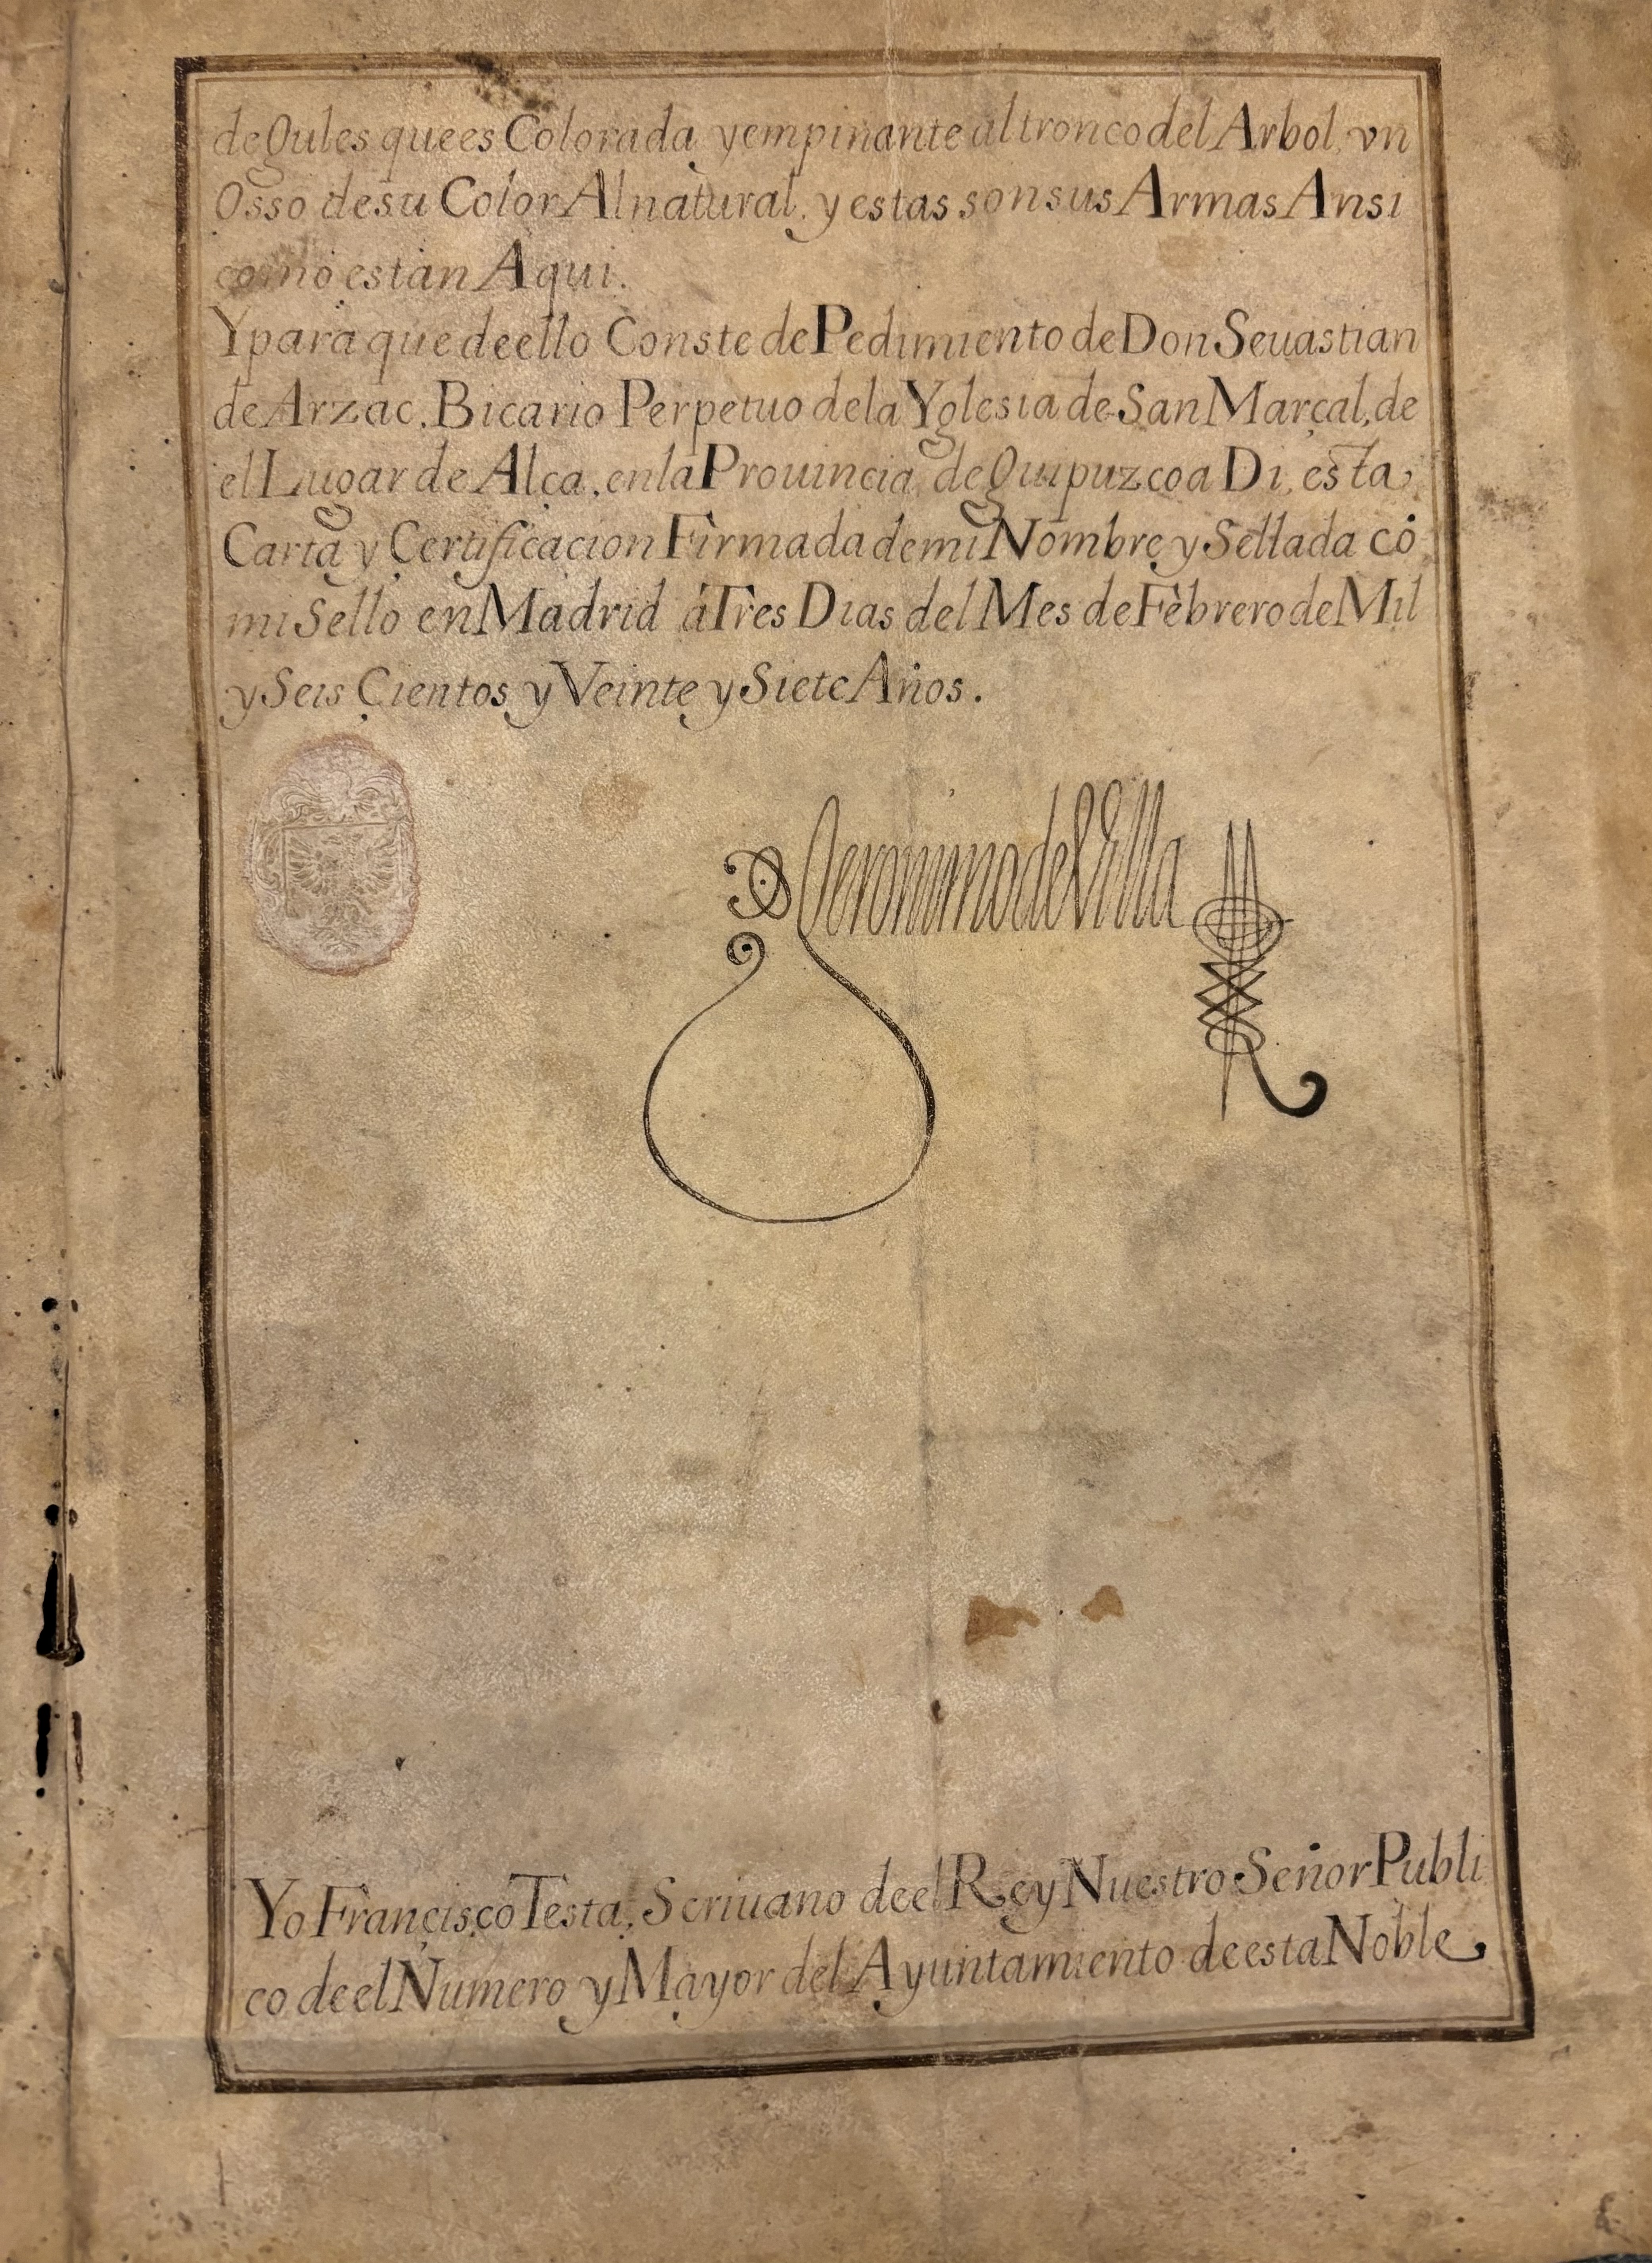 de Gules que es Colorada y empinante al tronco del Arbol, vn
Osso de su Color Al natural. y estas son sus Armas Ansi
como estan Aqui.
Y para que de ello Conste de Pedimiento de Don Seuastian
de Arzac. Bicario Perpetuo de la Yglesia de San Marçal, de
el Lugar de Alça. en la Prouincia de Guipuzcoa Di, esta
Carta y Certificacion Firmada de mi Nombre y Sellada cō
mi Sello en Madrid á Tres Dias del Mes de Febrero de Mil
y Seis Çientos y Veinte y Siete Años.
D Geronimo de Villa
Yo Francisco Testa. Scriuano de el Rey Nuestro Señor Publi
co de el Numero y Mayor del Ayuntamiento de esta Noble